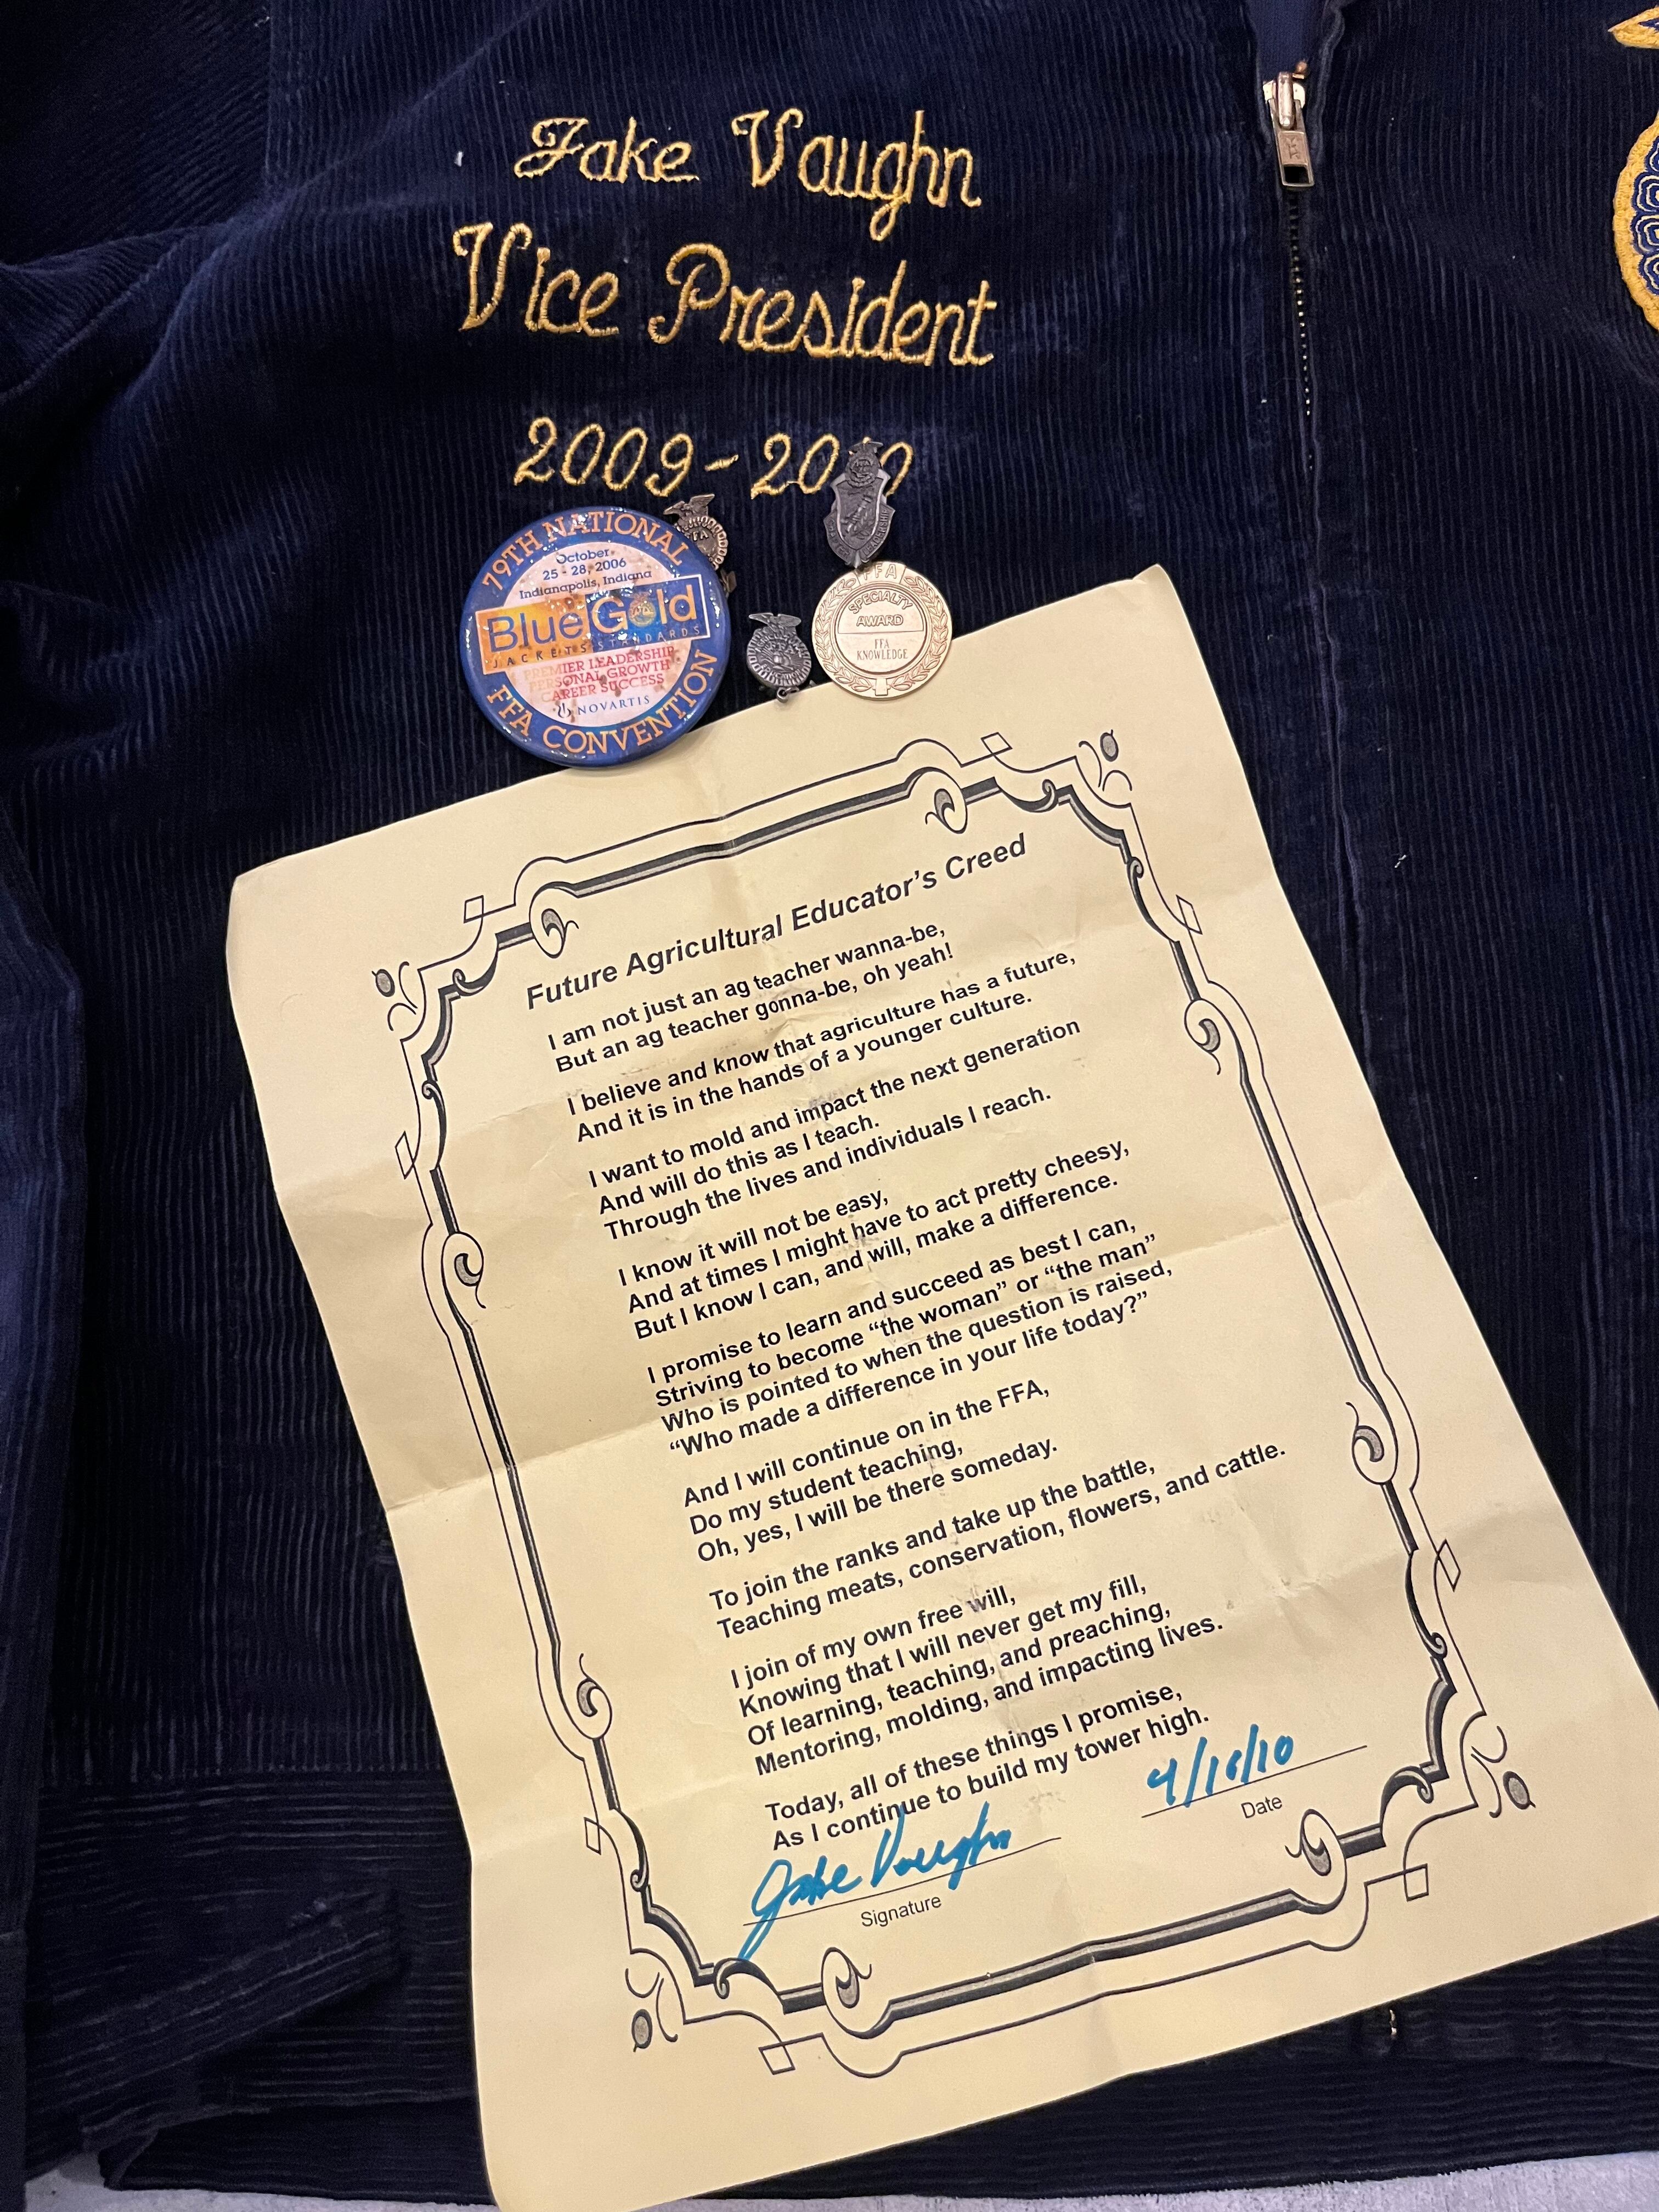 Jake Vaughn
Vice President
2009-2010
79TH NATIONAL
October
25 - 28, 2006
Indianapolis, Indiana
Blue Gold
JACKETS STANDARDS
PREMIER LEADERSHIP
PERSONAL GROWTH
CAREER SUCCESS
NOVARTIS
FFA CONVENTION
FFA
FFA
SPECIALTY
AWARD
FFA
KNOWLEDGE
Future Agricultural Educator's Creed
I am not just an ag teacher wanna-be,
But an ag teacher gonna-be, oh yeah!
I believe and know that agriculture has a future,
And it is in the hands of a younger culture.
I want to mold and impact the next generation
And will do this as I teach.
Through the lives and individuals I reach.
I know it will not be easy,
And at times I might have to act pretty cheesy,
But I know I can, and will, make a difference.
I promise to learn and succeed as best I can,
Striving to become “the woman” or “the man”
Who is pointed to when the question is raised,
“Who made a difference in your life today?”
And I will continue on in the FFA,
Do my student teaching,
Oh, yes, I will be there someday.
To join the ranks and take up the battle,
Teaching meats, conservation, flowers, and cattle.
I join of my own free will,
Knowing that I will never get my fill,
Of learning, teaching, and preaching,
Mentoring, molding, and impacting lives.
Today, all of these things I promise,
As I continue to build my tower high.
Jake Vaughn
Signature
4/16/10
Date